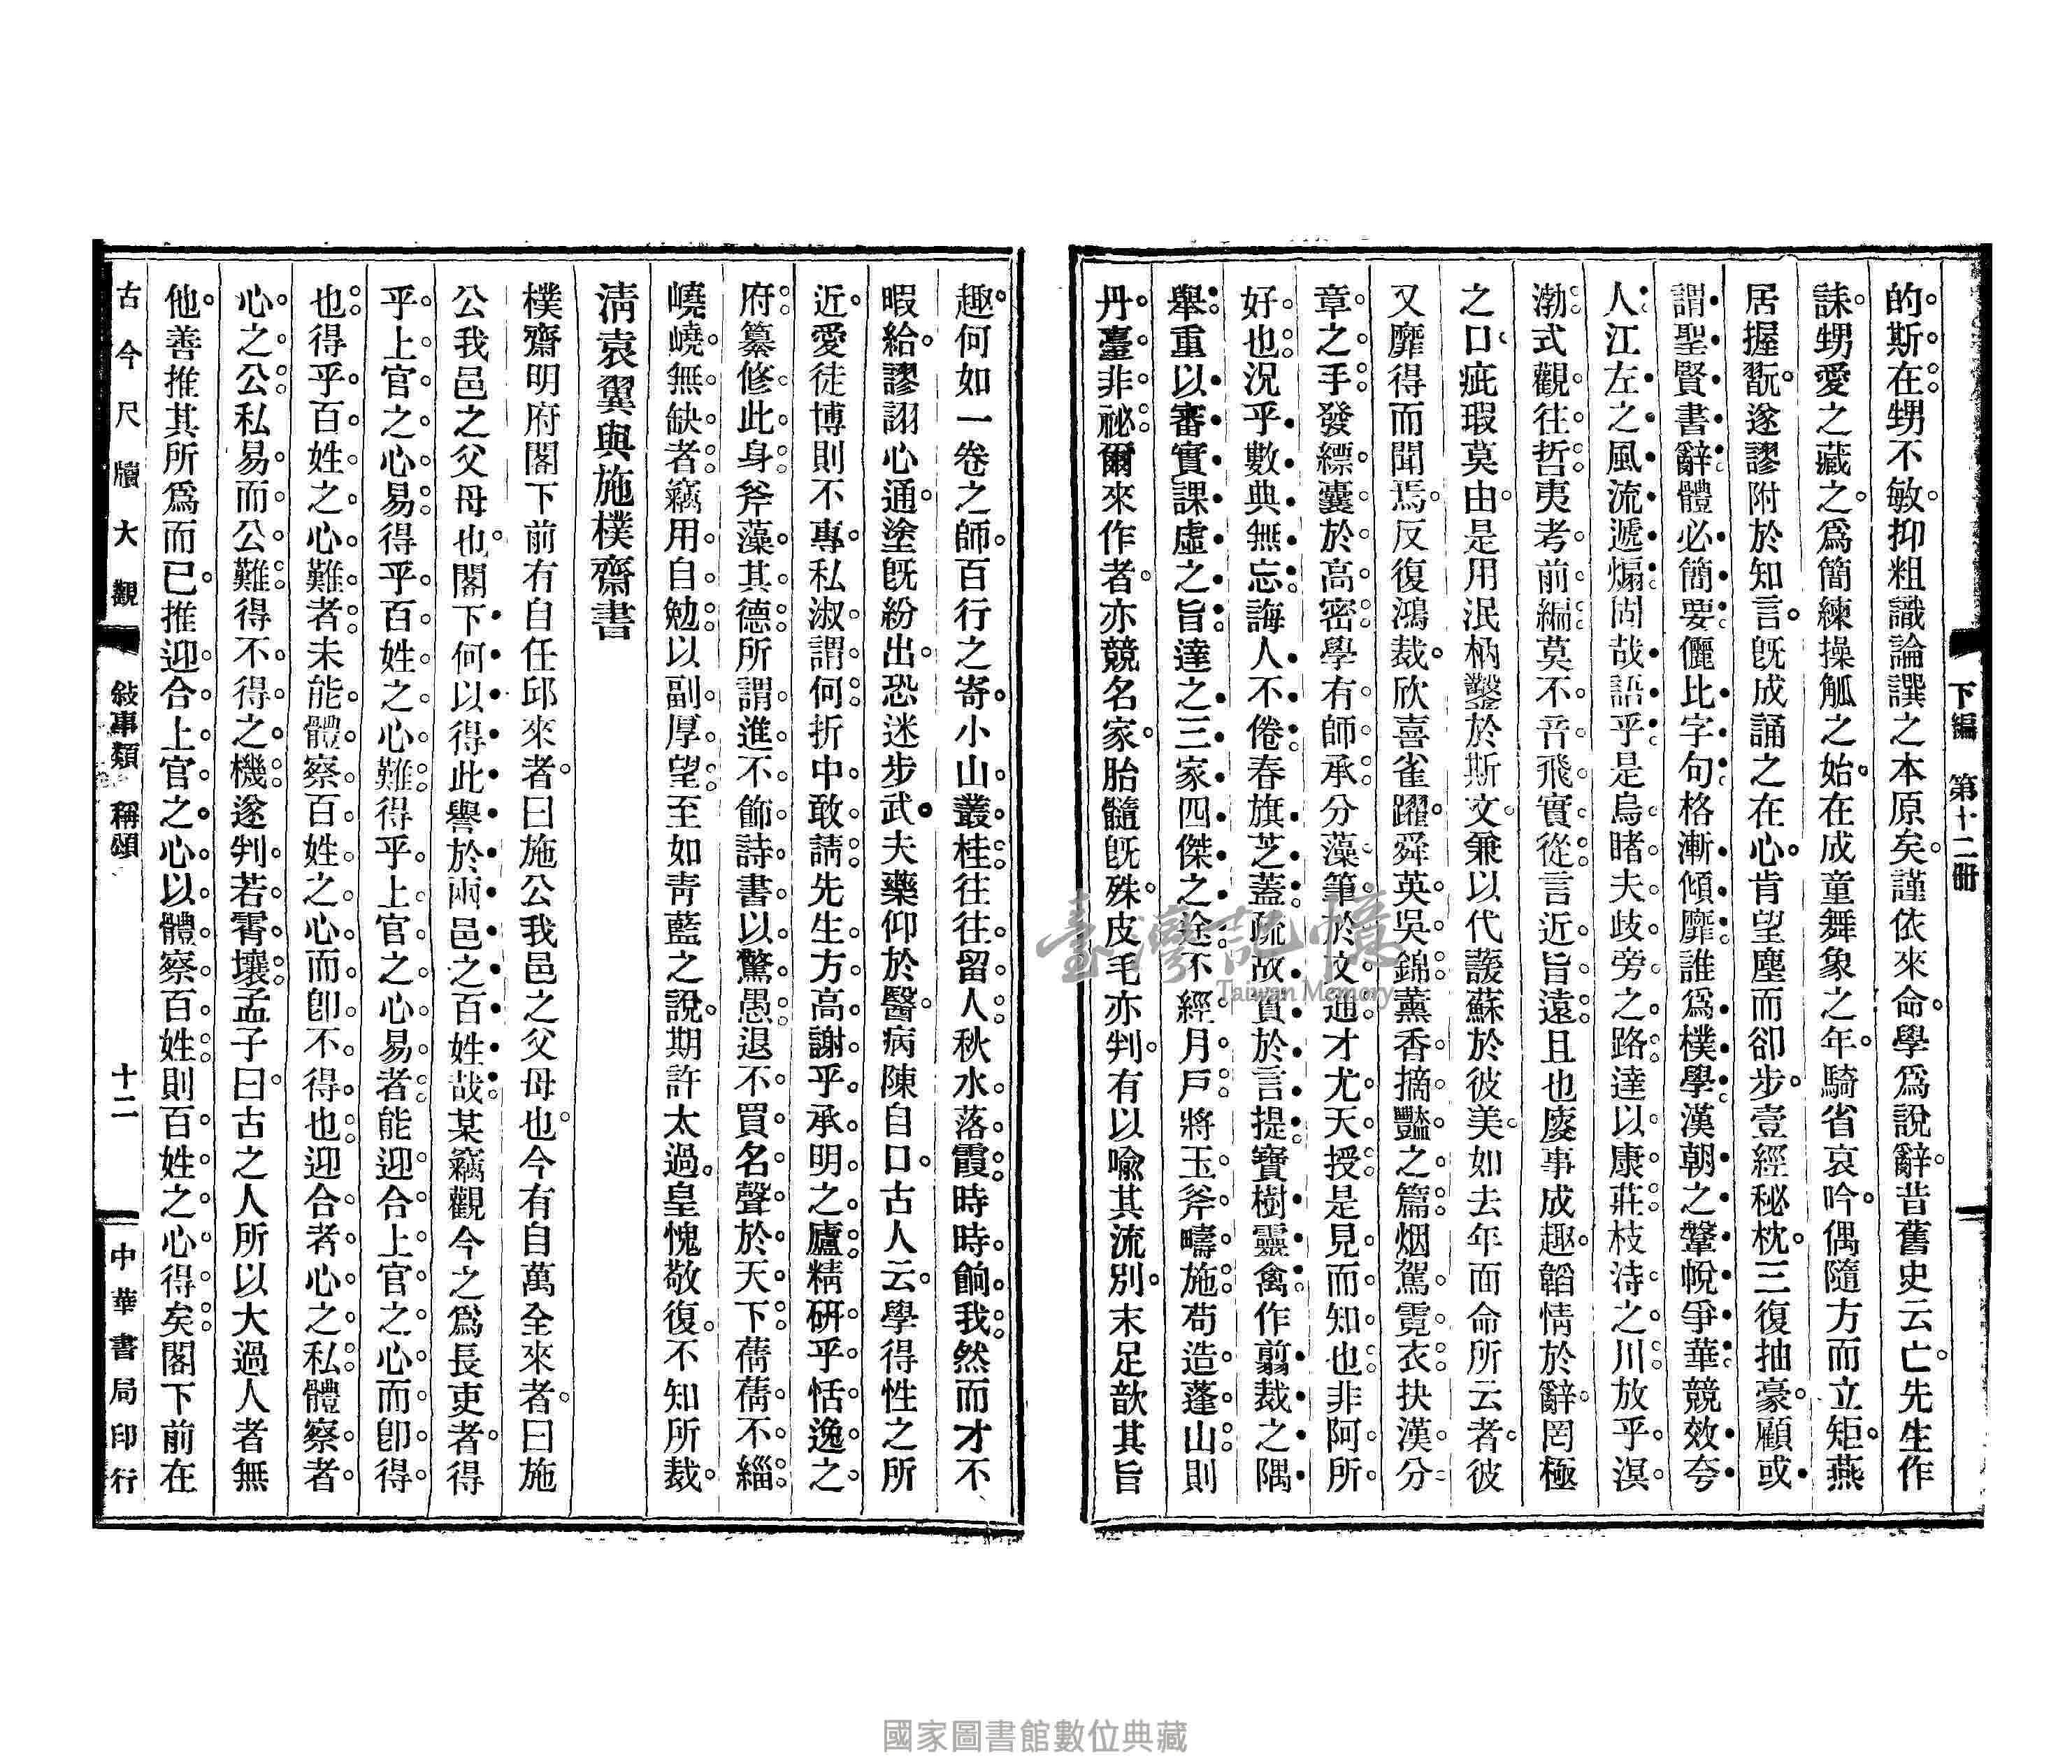 下編 第十二冊
的斯在甥不敏抑粗識論譔之本原矣謹依來命學爲說辭昔舊史云亡先生作
誄甥愛之藏之爲簡練操觚之始在成童舞象之年騎省哀吟偶隨方而立矩燕
居握翫遂謬附於知言旣成誦之在心肯望塵而卻步壹經秘枕三復抽豪顧或
謂聖賢書辭體必簡要儷比字句格漸傾靡誰爲樸學漢朝之鞶帨爭華競效夸
人江左之風流遞煽固哉語乎是烏睹夫歧旁之路達以康莊枝洔之川放乎溟
渤式觀往哲夷考前編莫不音飛實從言近旨遠且也廋事成趣韜情於辭罔極
之口疵瑕莫由是用泯柄鑿於斯文兼以代諼蘇於彼美如去年面命所云者彼
又靡得而聞焉反復鴻裁欣喜雀躍舜英吳錦薰香摘豔之篇烟駕霓衣抉漢分
章之手發縹囊於高密學有師承分藻筆於文通才尤天授是見而知也非阿所
好也況乎數典無忘誨人不倦春旗芝蓋疏故實於言提寶樹靈禽作翦裁之隅
舉重以審實課虛之旨達之三家四傑之途不經月戶將玉斧疇施苟造蓬山則
丹臺非祕爾來作者亦競名家胎髓旣殊皮毛亦判有以喩其流別末足歆其旨
趣何如一卷之師百行之寄小山叢桂往往留人秋水落霞時時餉我然而才不
暇給謬詡心通塗旣紛出恐迷步武夫藥仰於醫病陳自口古人云學得性之所
近愛徒博則不專私淑謂何折中敢請先生方高謝乎承明之廬精硏乎恬逸之
府纂修此身斧藻其德所謂進不飾詩書以驚愚退不買名聲於天下蒨蒨不緇
嶢嶢無缺者竊用自勉以副厚望至如靑藍之說期許太過皇愧敬復不知所裁
淸袁翼與施樸齋書
樸齋明府閣下前有自任邱來者曰施公我邑之父母也今有自萬全來者曰施
公我邑之父母也閣下何以得此譽於兩邑之百姓哉某竊觀今之爲長吏者得
乎上官之心易得乎百姓之心難得乎上官之心易者能迎合上官之心而卽得
也得乎百姓之心難者未能體察百姓之心而卽不得也迎合者心之私體察者
心之公私易而公難得不得之機遂判若霄壤孟子曰古之人所以大過人者無
他善推其所爲而已推迎合上官之心以體察百姓則百姓之心得矣閣下前在
古今尺牘大觀 敍事類 稱頌 十二 中華書局印行
臺灣記憶
Taiwan Memory
國家圖書館數位典藏